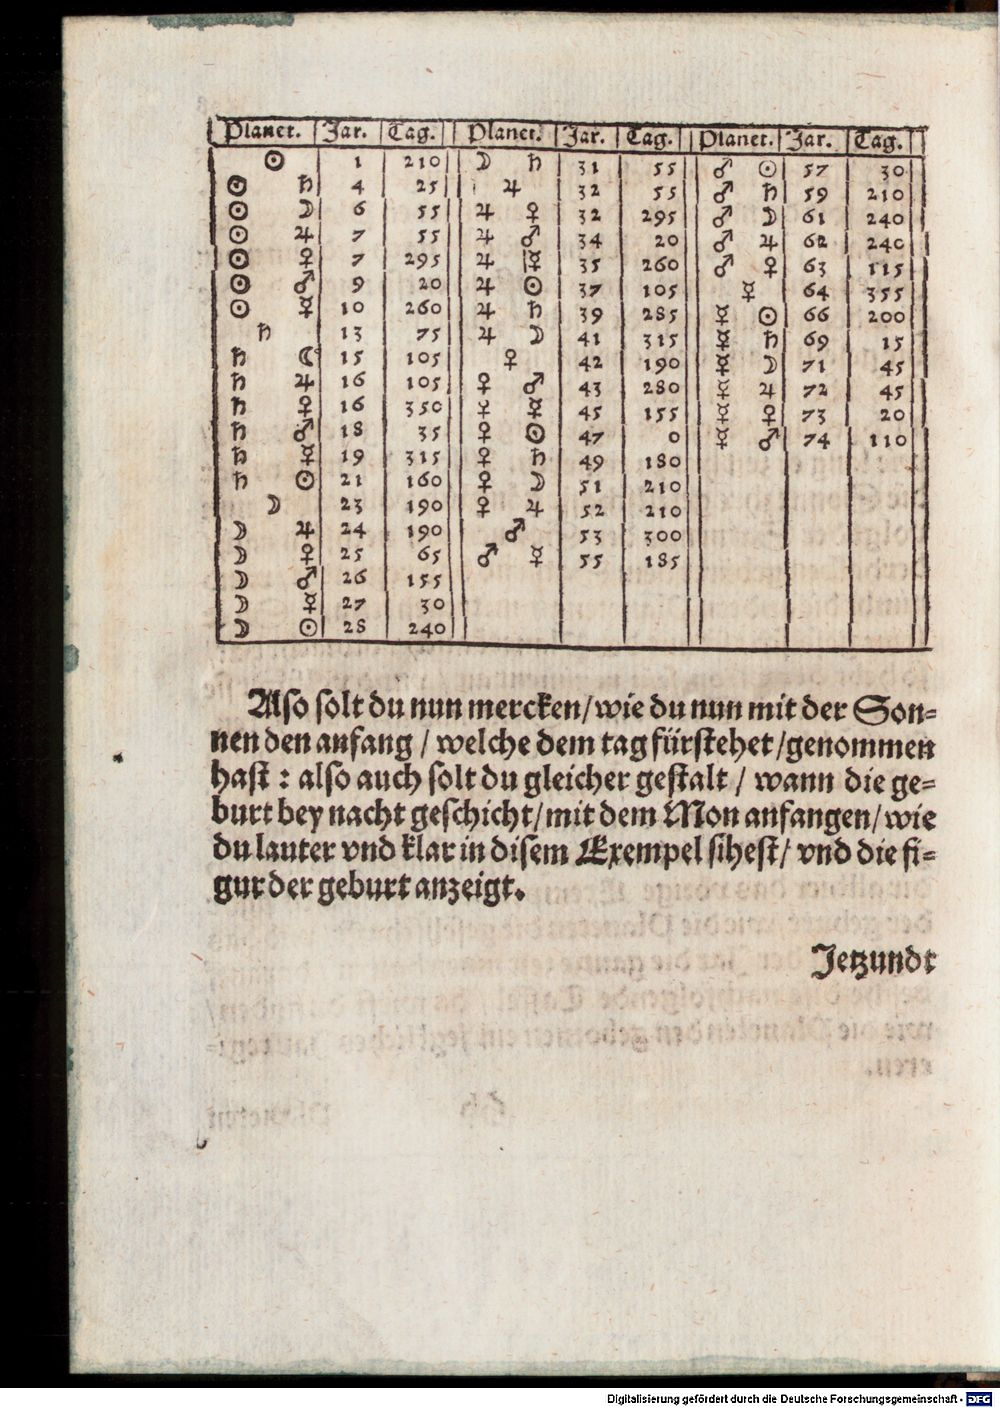 Planet. Jar. Tag. Planet. Jar. Tag. Planet. Jar. Tag.
☉ 1 210 ☽ ♄ 31 55 ♂ ☉ 57 30
☉ ♄ 4 25 ♃ 32 55 ♂ ♄ 59 210
☉ ☽ 6 55 ♃ ♀ 32 295 ♂ ☽ 61 240
☉ ♃ 7 55 ♃ ♂ 34 20 ♂ ♃ 62 240
☉ ♀ 7 295 ♃ ☿ 35 260 ♂ ♀ 63 115
☉ ♂ 9 20 ♃ ☉ 37 105 ☿ 64 355
☉ ☿ 10 260 ♃ ♄ 39 285 ☿ ☉ 66 200
♄ 13 75 ♃ ☽ 41 315 ☿ ♄ 69 15
♄ ☾ 15 105 ♀ 42 190 ☿ ☽ 71 45
♄ ♃ 16 105 ♀ ♂ 43 280 ☿ ♃ 72 45
♄ ♀ 16 350 ♀ ☿ 45 155 ☿ ♀ 73 20
♄ ♂ 18 35 ♀ ☉ 47 0 ☿ ♂ 74 110
♄ ☿ 19 315 ♀ ♄ 49 180
♄ ☉ 21 160 ♀ ☽ 51 210
☽ 23 190 ♀ ♃ 52 210
☽ ♃ 24 190 ♂ 53 300
☽ ♀ 25 65 ♂ ☿ 55 185
☽ ♂ 26 155
☽ ☿ 27 30
☽ ☉ 28 240
Also solt du nun mercken/wie du nun mit der Son=
nen den anfang / welche dem tag fürstehet/genommen
hast : also auch solt du gleicher gestalt / wann die ge=
burt bey nacht geschicht/mit dem Mon anfangen/wie
du lauter vnd klar in disem Exempel sihest/ vnd die fi=
gur der geburt anzeigt.
Jetzundt
Digitalisierung gefördert durch die Deutsche Forschungsgemeinschaft - DFG